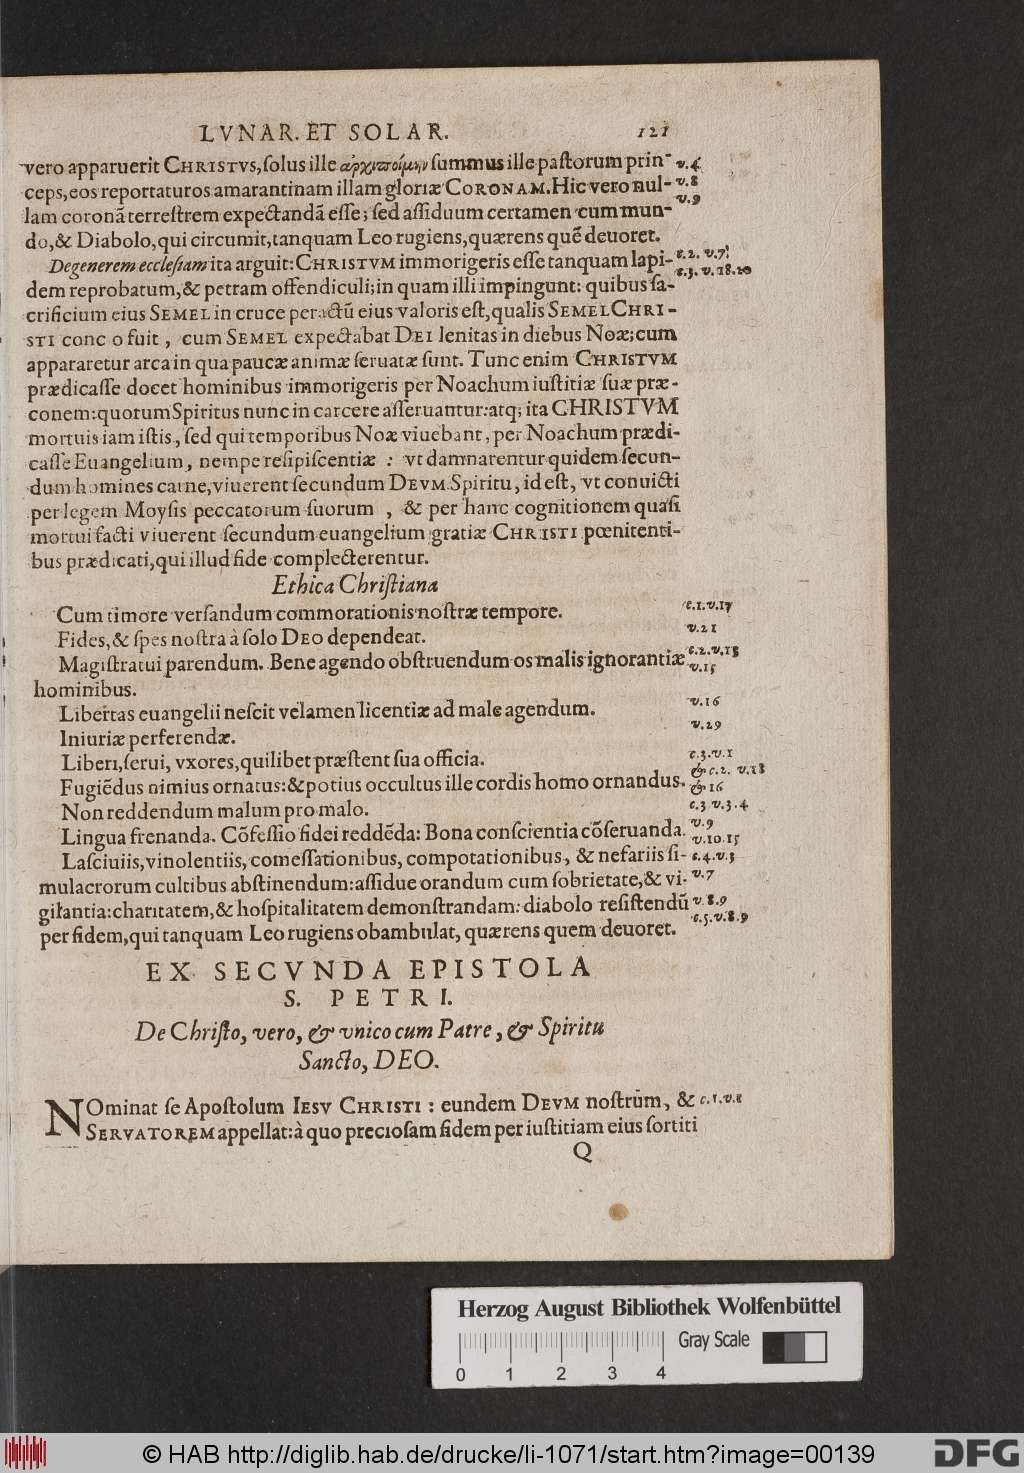 LVNAR. ET SOLAR. 121
vero apparuerit CHRISTVS, ſolus ille ἀρχιποίμην ſummus ille paſtorum prin- v.4
ceps, eos reportaturos amarantinam illam gloriæ CORONAM. Hic vero nul- v.8
lam coronã terreſtrem expectandã eſſe; ſed aſſiduum certamen cum mun- v.9
do, & Diabolo, qui circumit, tanquam Leo rugiens, quærens quẽ deuoret.
Degenerem eccleſiam ita arguit: CHRISTVM immorigeris eſſe tanquam lapi- c.2. v.7.
dem reprobatum, & petram offendiculi; in quam illi impingunt: quibus ſa- c.3. v.18.20
crificium eius SEMEL in cruce peractũ eius valoris eſt, qualis SEMEL CHRI-
STI conc o fuit, cum SEMEL expectabat DEI lenitas in diebus Noæ; cum
appararetur arca in qua paucæ animæ ſeruatæ ſunt. Tunc enim CHRISTVM
prædicaſſe docet hominibus immorigeris per Noachum iuſtitiæ ſuæ præ-
conem: quorum Spiritus nunc in carcere aſſeruantur: atq; ita CHRISTVM
mortuis iam iſtis, ſed qui temporibus Noæ viuebant, per Noachum prædi-
caſſe Euangelium, nempe reſipiſcentiæ : vt damnarentur quidem ſecun-
dum homines carne, viuerent ſecundum DEVM Spiritu, id eſt, vt conuicti
per legem Moyſis peccatorum ſuorum, & per hanc cognitionem quaſi
mortui facti viuerent ſecundum euangelium gratiæ CHRISTI pœnitenti-
bus prædicati, qui illud fide complecterentur.
Ethica Chriſtiana
Cum timore verſandum commorationis noſtræ tempore. c.1.v.17
Fides, & ſpes noſtra à ſolo DEO dependeat. v.21
Magiſtratui parendum. Bene agendo obſtruendum os malis ignorantiæ c.2.v.13
hominibus. v.15
Libertas euangelii neſcit velamen licentiæ ad male agendum. v.16
Iniuriæ perferendæ. v.29
Liberi, ſerui, vxores, quilibet præſtent ſua officia. c.3.v.1
Fugiẽdus nimius ornatus: & potius occultus ille cordis homo ornandus. & c.2. v.18 & 16
Non reddendum malum pro malo. c.3 v.3.4
Lingua frenanda. Cõfeſſio fidei reddẽda: Bona conſcientia cõſeruanda. v.9 v.10.15
Laſciuiis, vinolentiis, comeſſationibus, compotationibus, & nefariis ſi- c.4.v.3
mulacrorum cultibus abſtinendum: aſſidue orandum cum ſobrietate, & vi- v.7
gilantia: charitatem, & hoſpitalitatem demonſtrandam: diabolo reſiſtendũ v.8.9
per fidem, qui tanquam Leo rugiens obambulat, quærens quem deuoret. c.5.v.8.9
EX SECVNDA EPISTOLA
S. PETRI.
De Chriſto, vero, & vnico cum Patre, & Spiritu
Sancto, DEO.
NOminat ſe Apoſtolum IESV CHRISTI : eundem DEVM noſtrum, & c.1.v.1
SERVATOREM appellat: à quo precioſam fidem per iuſtitiam eius ſortiti
Q
Herzog August Bibliothek Wolfenbüttel
Gray Scale
0 1 2 3 4
© HAB http://diglib.hab.de/drucke/li-1071/start.htm?image=00139
DFG